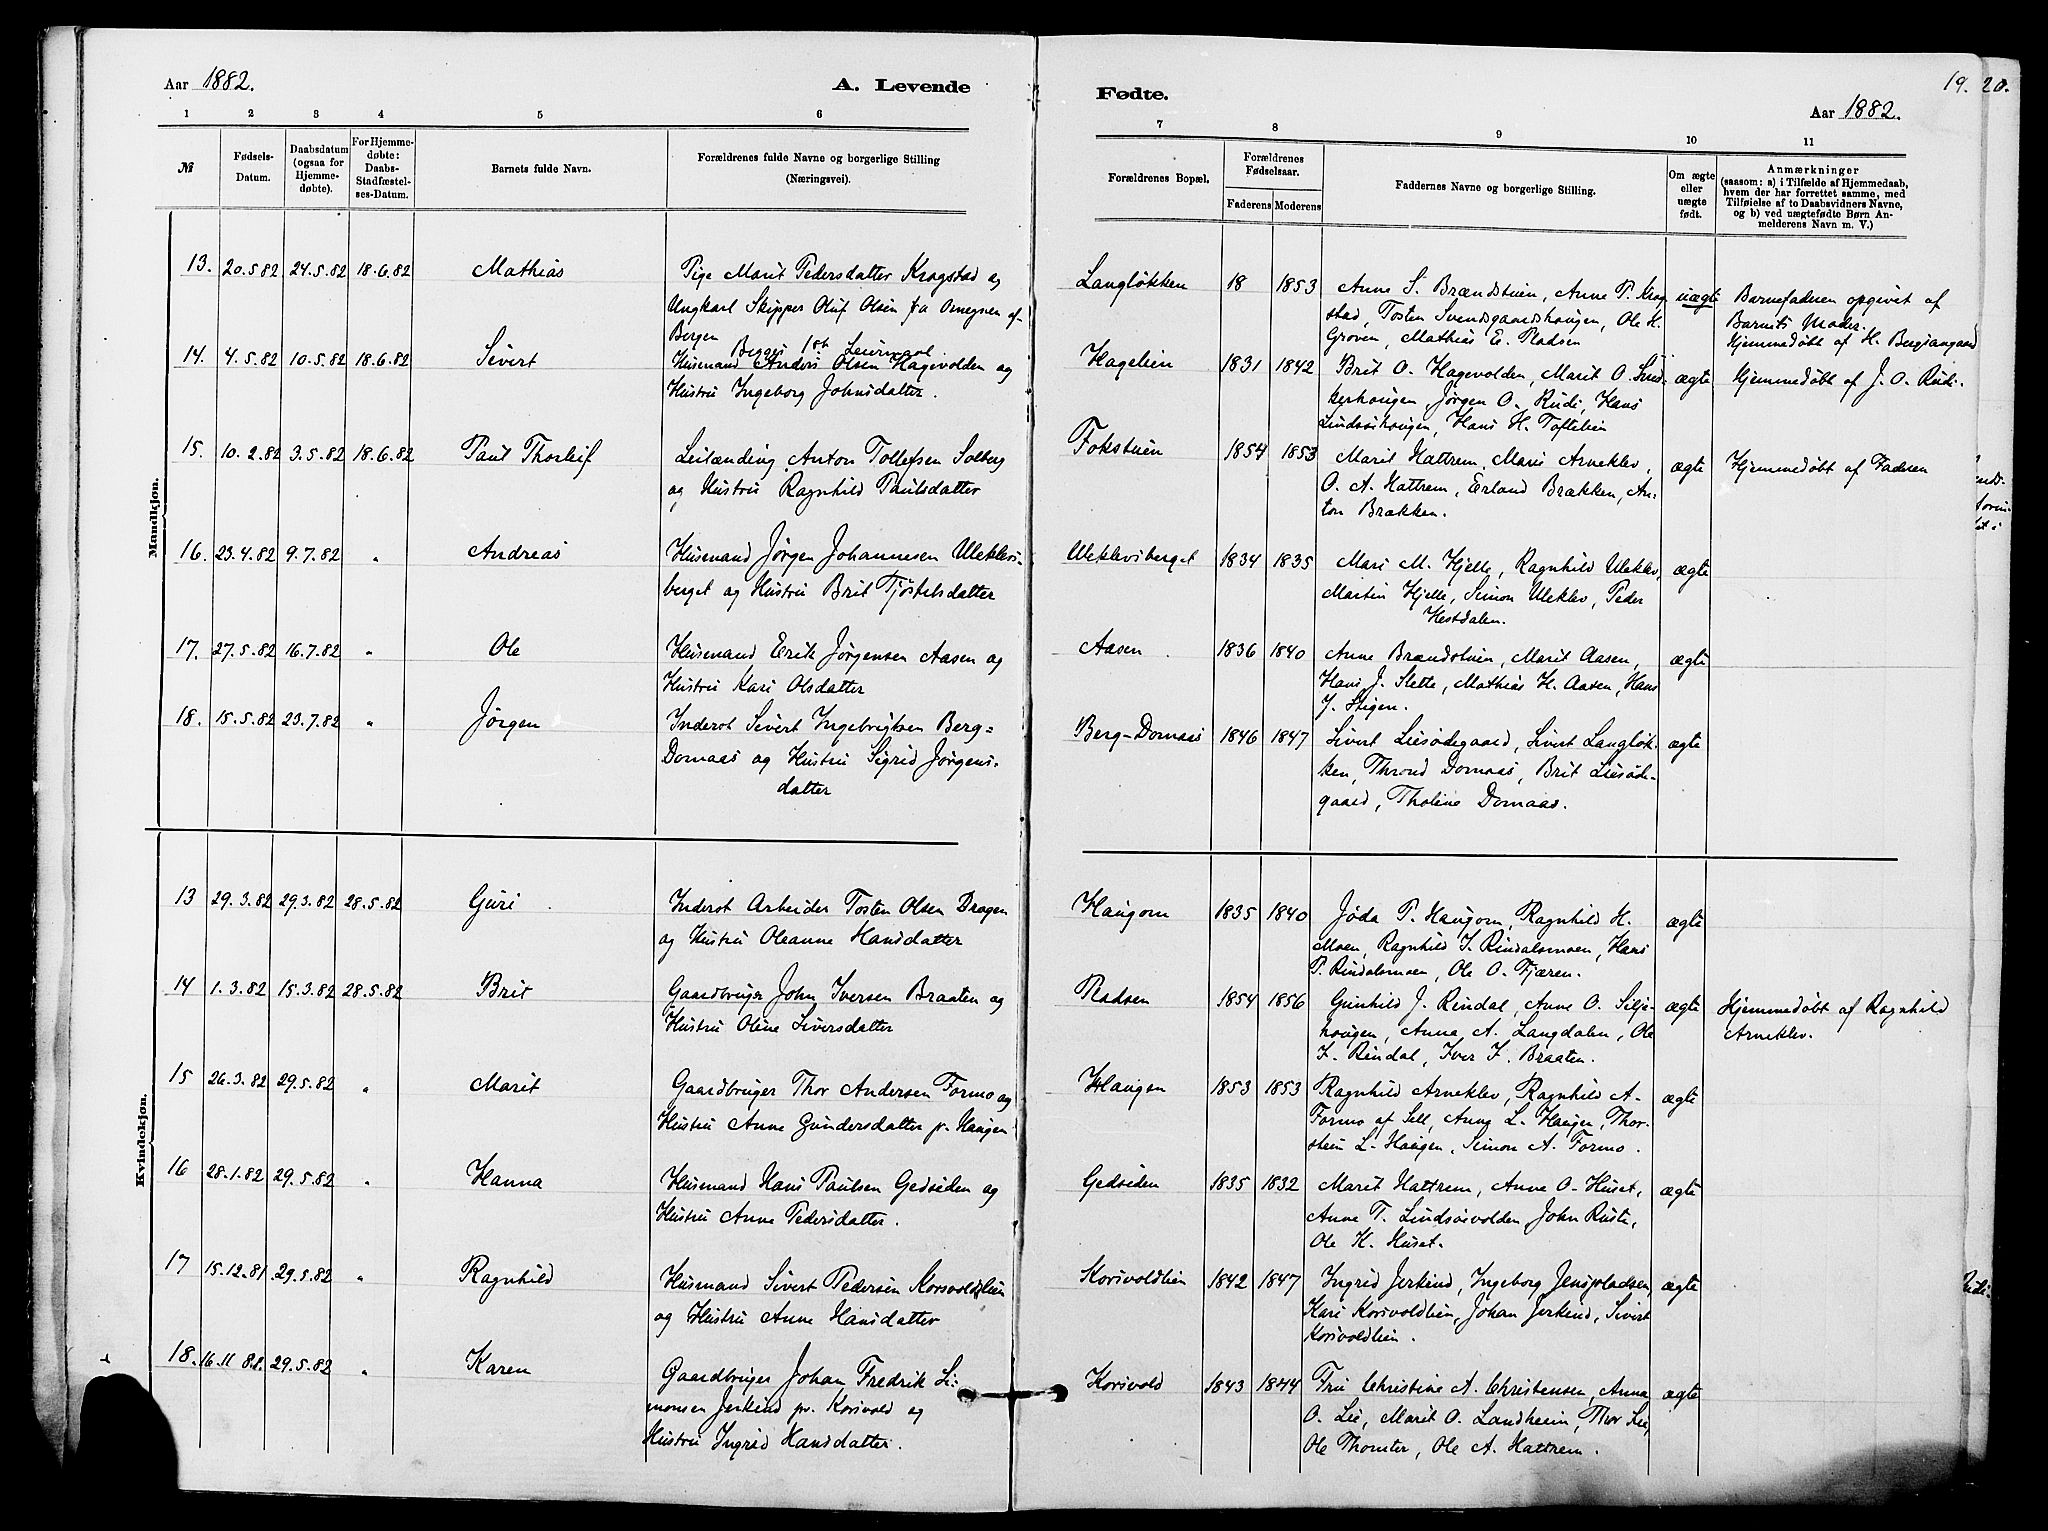 Aar 1882.
A. Levende
Fødte.
19. 20.
Aar 1882.
1 2 3 4 5 6 7 8 9 10 11
№
Fødsels-
Datum.
Daabsdatum
(ogsaa for
Hjemme-
døbte).
For Hjemme-
døbte:
Daabs-
Stadfæstel-
ses-Datum.
Barnets fulde Navn.
Forældrenes fulde Navne og borgerlige Stilling
(Næringsvei).
Forældrenes Bopæl.
Forældrenes
Fødselsaar.
Faderens Moderens
Faddernes Navne og borgerlige Stilling.
Om ægte
eller
uægte
født.
Anmærkninger
(saasom: a) i Tilfælde af Hjemmedaab,
hvem der har forrettet samme, med
Tilføielse af to Daabsvidners Navne,
og b) ved uægtefødte Børn An-
melderens Navn m. V.)
Mandkjøn.
13. 20.5.82 24.5.82 18.6.82 Mathias
Pige Marit Pedersdatter Kragstad og
Ungkarl Skipper Oluf Olsen fra Omegnen af
Bergen Begges 1st Leiermaal.
Langløkken 18 1853
Anne S. Brændstuen, Anne P. Krag
stad, Tosten Svendsgaardshougen, Ole H.
Groven, Mathias E. Pladsen
uægte
Barnefaderen opgivet af
Barnets Moder.
Hjemmedøbt af H. Bergsangaard
14. 4.5.82 10.5.82 18.6.82 Sivert
Husmand Anders Olsen Hagevolden og
Hustru Ingeborg Johnsdatter.
Hagelien 1831 1842
Brit O. Hagevolden, Marit O.
kerhougen, Jørgen O. Rudi, Hans
Lindsøihougen, Hans H. Toftelien
ægte
Hjemmedøbt af J. O. Rudi.
15. 10.2.82 3.5.82 18.6.82 Paul Thorleif
Leilænding Anton Tollefsen Solberg
og Hustru Ragnhild Paulsdatter
Fokstuen 1854 1853
Marit Hattrem, Maris Arneklev,
O. A. Hattrem, Erland Brækken, An-
ton Brækken.
ægte
Hjemmedøbt af Faderen
16. 23.4.82 9.7.82 " Andreas
Husmand Jørgen Johannesen Uleklevs-
berget og Hustru Brit Tjøstelsdatter
Uleklevsberget 1834 1835
Mari M. Hjelle, Ragnhild Uleklev,
Martin Hjelle, Simon Uleklev, Peder
Hestdalen.
ægte
17. 27.5.82 16.7.82 " Ole
Husmand Erik Jørgensen Aasen og
Hustru Kari Olsdatter
Aasen 1836 1840
Anne Brændstuen, Marit Aasen,
Hans J. Slette, Mathias H. Aasen, Hans
J. Stigen.
ægte
18. 15.5.82 23.7.82 " Jørgen
Inderst Sivert Ingebrigtsen Berg-
Domaas og Hustru Sigrid Jørgens-
datter
Berg-Domaas 1846 1847
Sivert Liesødegaard, Sivert Langløk-
ken, Thrond Domaas, Brit Liesøde-
gaard, Tholine Domaas.
ægte
Kvindekjøn.
13 29.3.82 29.3.82 28.5.82 Guri
Inderst Arbeider Tosten Olsen Dragen
og Hustru Oleanne Hansdatter
Haugom 1835 1840
Jøda P. Haugom, Ragnhild H.
Moen, Ragnhild I. Rindalsmoen, Hans
P. Rindalsmoen, Ole O. Tjæren.
ægte
14 1.3.82 15.3.82 28.5.82 Brit
Gaardbruger John Iversen Braaten og
Hustru Oline Siversdatter
Pladsen 1854 1856
Gunhild J. Rindal, Anne O. Silje-
hougen, Anna A. Langdalen, Ole
I. Rindal, Iver I. Braaten.
ægte
Hjemmedøbt af Ragnhild
Arneklev.
15 26.3.82 29.5.82 " Marit
Gaardbruger Thor Andersen Formo og
Hustru Anne Gundersdatter p. Haugen
Haugen 1853 1853
Ragnhild Arneklev, Ragnhild A.
Formo af Sell, Anne L. Haugen, Thor-
stein L. Haugen, Simon A. Formo.
ægte
16 28.1.82 29.5.82 " Hanna
Husmand Hans Paulsen Gedsiden og
Hustru Anne Pedersdatter.
Gedsiden 1835 1832
Marit Hattrem, Anne O. Huset,
Anne T. Lindsøivolden, John Ruste,
Ole H. Huset.
ægte
17 15.12.81 29.5.82 " Ragnhild
Husmand Sivert Pedersen Korsvoldlien
og Hustru Anne Hansdatter
Korsvoldlien 1842 1847
Ingrid Jerkind, Ingeborg Jenspladsen,
Kari Korsvoldlien, Johan Jerkind, Sivert
Korsvoldlien.
ægte
18. 16.11.81 29.5.82 " Karen
Gaardbruger Johan Fredrik Si-
monsen Jerkind pr. Korsvold og
Hustru Ingrid Hansdatter.
Korsvold 1843 1844
Fru Christine A. Christensen, Anna
O. Lie, Marit O. Landheim, Thor Lie,
Ole Thomter, Ole A. Hattrem.
ægte